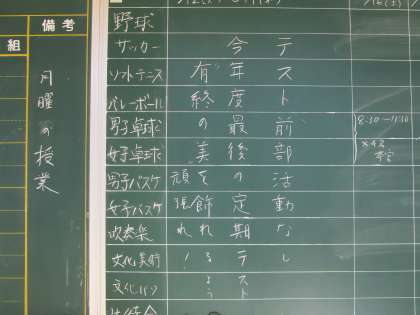 備考
組
月曜の授業
野球
サッカー
ソフトテニス
バレーボール
男子卓球
女子卓球
男子バスケ
女子バスケ
吹奏楽
文化美術
文化パソ
テスト前部活動なし
今年度最後の定期テスト
有終の美を飾れるよう
頑張れ!
8:30〜11:30